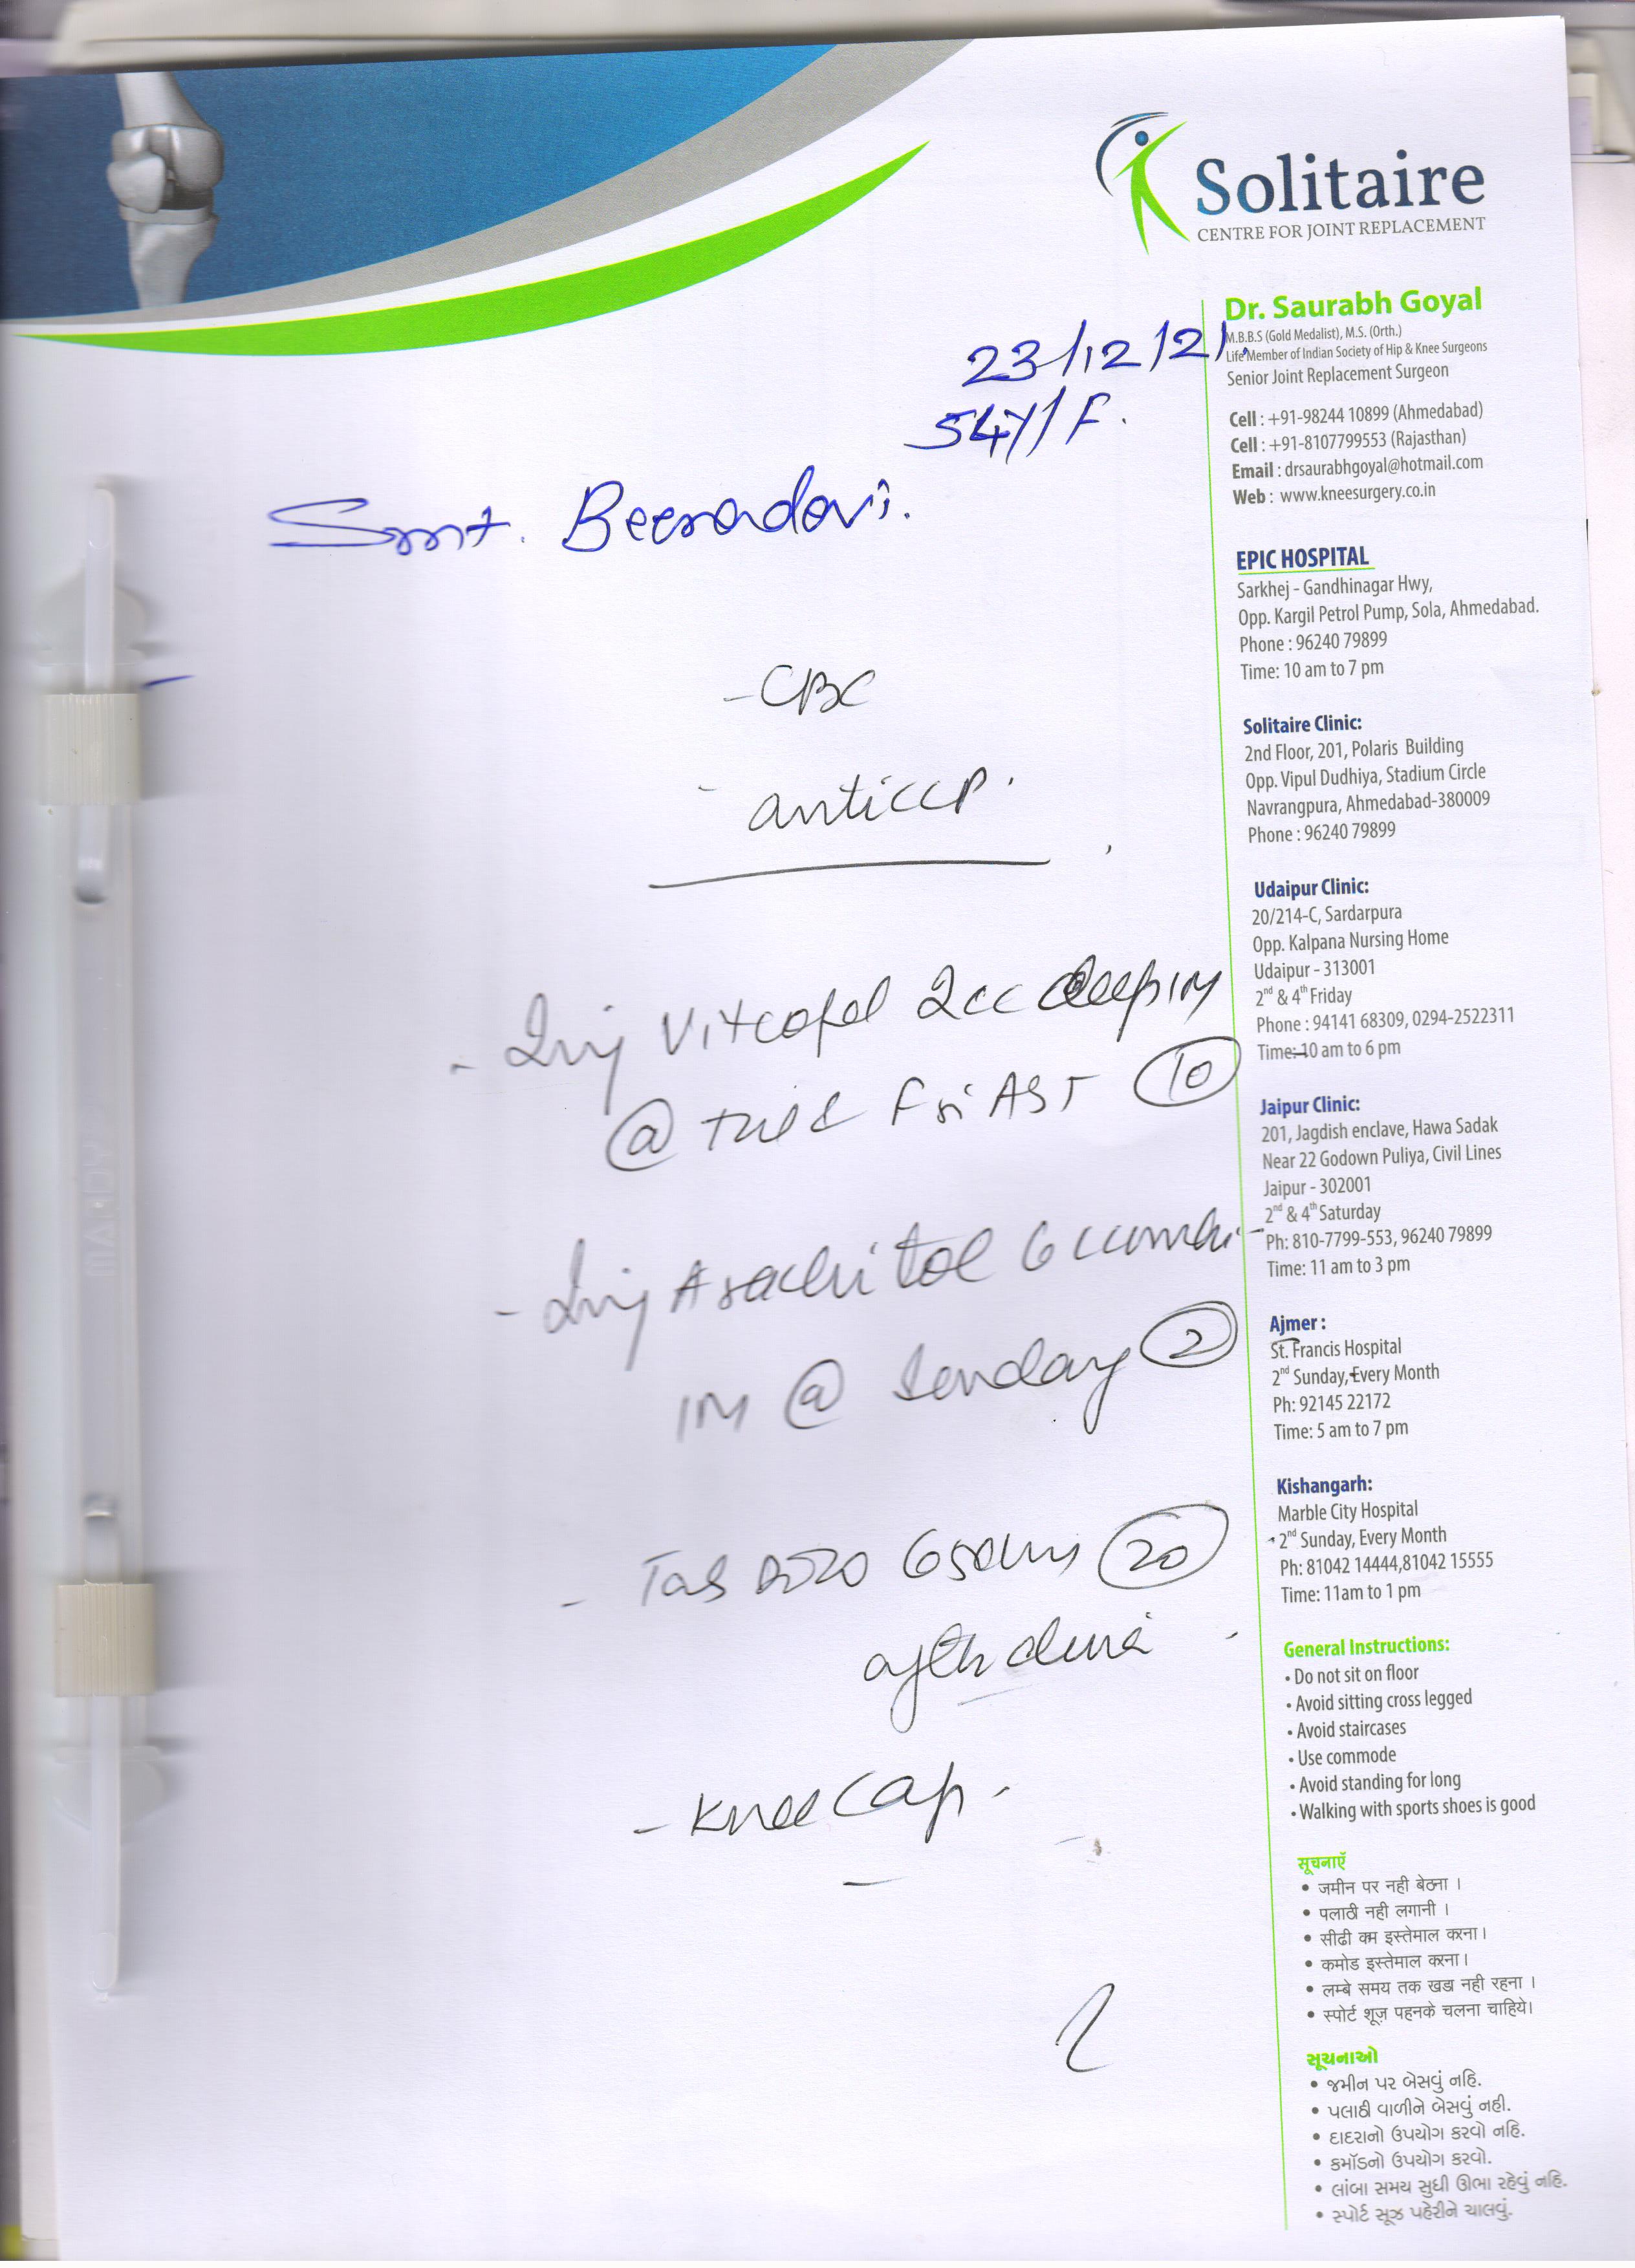 Solitaire
CENTRE FOR JOINT REPLACEMENT
Dr. Saurabh Goyal
M.B.B.S (Gold Medalist), M.S. (Orth.)
Life Member of Indian Society of Hip & Knee Surgeons
Senior Joint Replacement Surgeon
Cell : +91-98244 10899 (Ahmedabad)
Cell : +91-8107799553 (Rajasthan)
Email : drsaurabhgoyal@hotmail.com
Web : www.kneesurgery.co.in
EPIC HOSPITAL
Sarkhej - Gandhinagar Hwy,
Opp. Kargil Petrol Pump, Sola, Ahmedabad.
Phone : 96240 79899
Time: 10 am to 7 pm
Solitaire Clinic:
2nd Floor, 201, Polaris Building
Opp. Vipul Dudhiya, Stadium Circle
Navrangpura, Ahmedabad-380009
Phone : 96240 79899
Udaipur Clinic:
20/214-C, Sardarpura
Opp. Kalpana Nursing Home
Udaipur - 313001
2nd & 4th Friday
Phone : 94141 68309, 0294-2522311
Time: 10 am to 6 pm
Jaipur Clinic:
201, Jagdish enclave, Hawa Sadak
Near 22 Godown Puliya, Civil Lines
Jaipur - 302001
2nd & 4th Saturday
Ph: 810-7799-553, 96240 79899
Time: 11 am to 3 pm
Ajmer :
St. Francis Hospital
2nd Sunday, Every Month
Ph: 92145 22172
Time: 5 am to 7 pm
Kishangarh:
Marble City Hospital
2nd Sunday, Every Month
Ph: 81042 14444,81042 15555
Time: 11am to 1 pm
General Instructions:
• Do not sit on floor
• Avoid sitting cross legged
• Avoid staircases
• Use commode
• Avoid standing for long
• Walking with sports shoes is good
सूचनाएँ
• जमीन पर नही बेठना ।
• पलाठी नही लगानी ।
• सीढी कम इस्तेमाल करना।
• कमोड इस्तेमाल करना।
• लम्बे समय तक खडा नही रहना ।
• स्पोर्ट शूज़ पहनके चलना चाहिये।
સૂચનાઓ
• જમીન પર બેસવું નહિ.
• પલાઠી વાળીને બેસવું નહી.
• દાદરાનો ઉપયોગ કરવો નહિ.
• કમૉડનો ઉપયોગ કરવો.
• લાંબા સમય સુધી ઊભા રહેવું નહિ.
• સ્પોર્ટ સૂઝ પહેરીને ચાલવું.
23/12/21.
54y/F.
Smt. Beenadevi.
- CBC
- anticcp.
- Inj Vitcofol 2cc deep IM
@ tue & Fri AST 10
- Inj Arachitol 6
IM @ Sunday 2
- Tab 650 20
after
- Knee Cap.